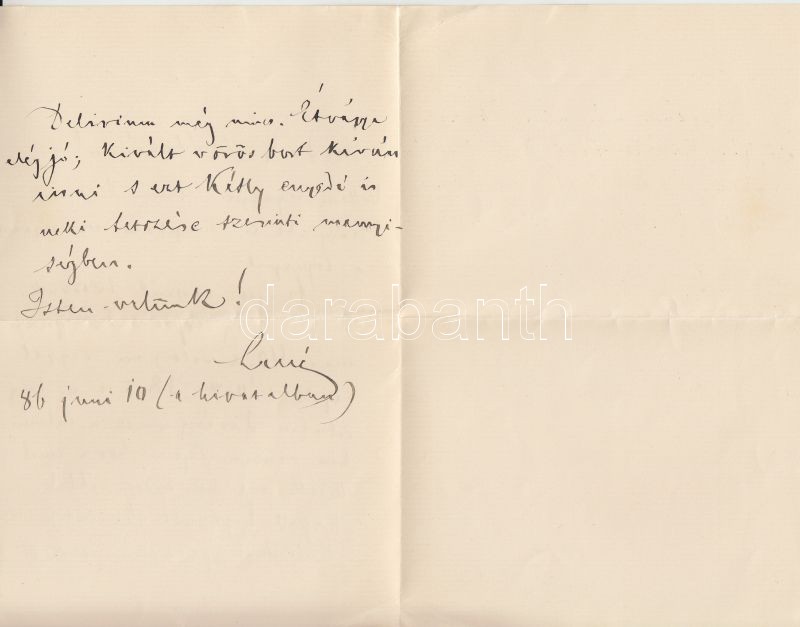 Delirium még nincs. Étvágya
elég jó; Kivált vörös bort kíván
inni s ezt Kétly engedi is
neki tetszése szerinti mennyi-
ségben.
Isten velünk!
darabanth
86 juni 10 (a hivatalban)